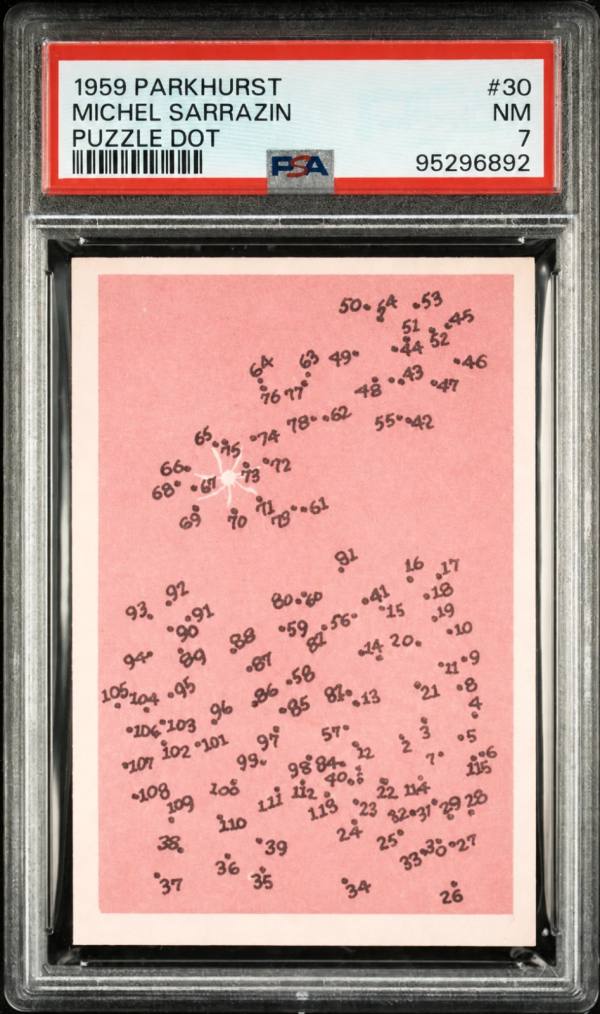 1959 PARKHURST #30
MICHEL SARRAZIN NM
PUZZLE DOT 7
PSA 95296892
50 54 53
51 45
52
64 63 49 44 46
76 77 48 43 47
78 62 55 42
65 75 74
66 72
68 67 73
69 70 71 79 61
81 16 17
92 80 60 41 18
93 91 15 19
90 88 59 56 10
94 89 87 82 14 20 9
58 11
105 104 95 86 13 21 8
96 85 4
106 103 57 3
102 101 97 12 2 5
107 99 98 84 7 6
40 115
108 100 112 22 114
109 111 113 23 32 31 29 28
110 24 25
38 39 33 30 27
36
37 35 34 26